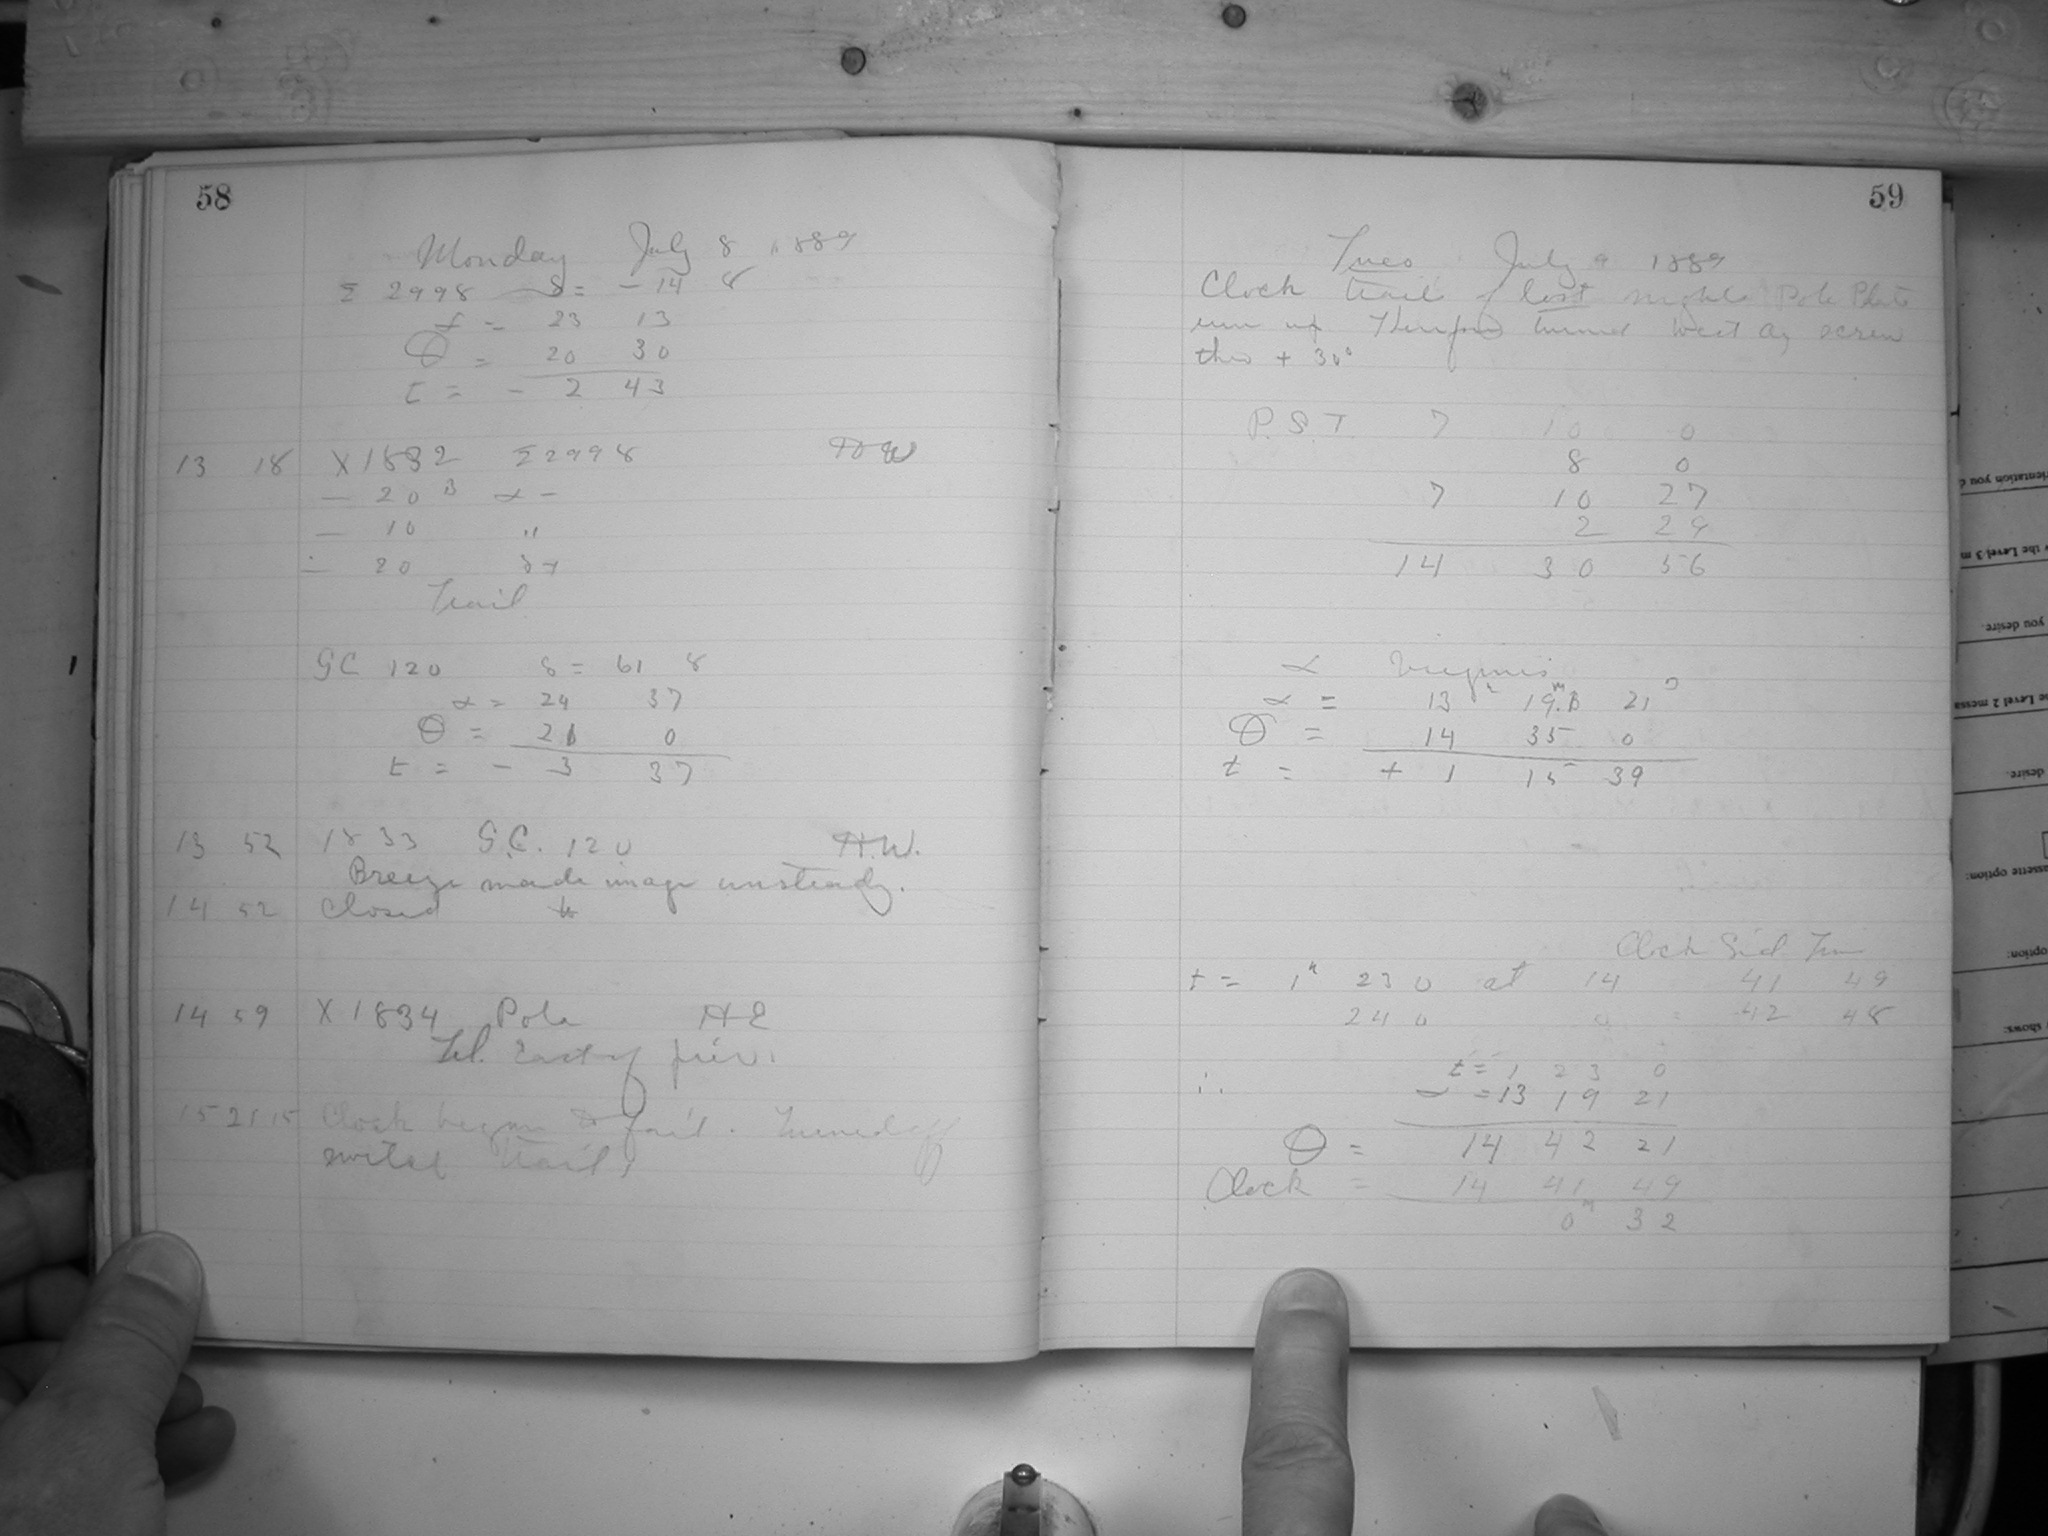 58
Monday July 8 1889
Σ 2998 δ = - 14 8
α = 23 13
θ = 20 30
t = - 2 43
13 18 X 1832 Σ 2998 HW
- 20 B α -
- 10 "
- 20
Trail
GC 120 δ = 61 8
α = 24 37
θ = 21 0
t = - 3 37
13 52 1833 G.C. 120 H.W.
Breeze made image unsteady.
14 52 Closed
14 59 X 1834 Pole
Tel. East of pier.
15 21 15 Clock began to fail. Turned off
trail
59
Tues July 9 1889
Clock trail of last nights Pole Plate
run up Therefore turned west screw
thro + 30°
P.S.T. 7 10 0
8 0
7 10 27
2 29
14 30 56
α Virginis
α = 13h 19m.B 21s
θ = 14 35 0
t = + 1 15 39
Clock Sid Time
t = 1h 23 0 at 14 41 49
24 0 42 48
∴ t = 1 23 0
α = 13 19 21
θ = 14 42 21
Clock = 14 41 49
0m 32
orientation you
the Level 3 m
you desire.
e Level 2 messa
desire.
assette option:
option:
shows: